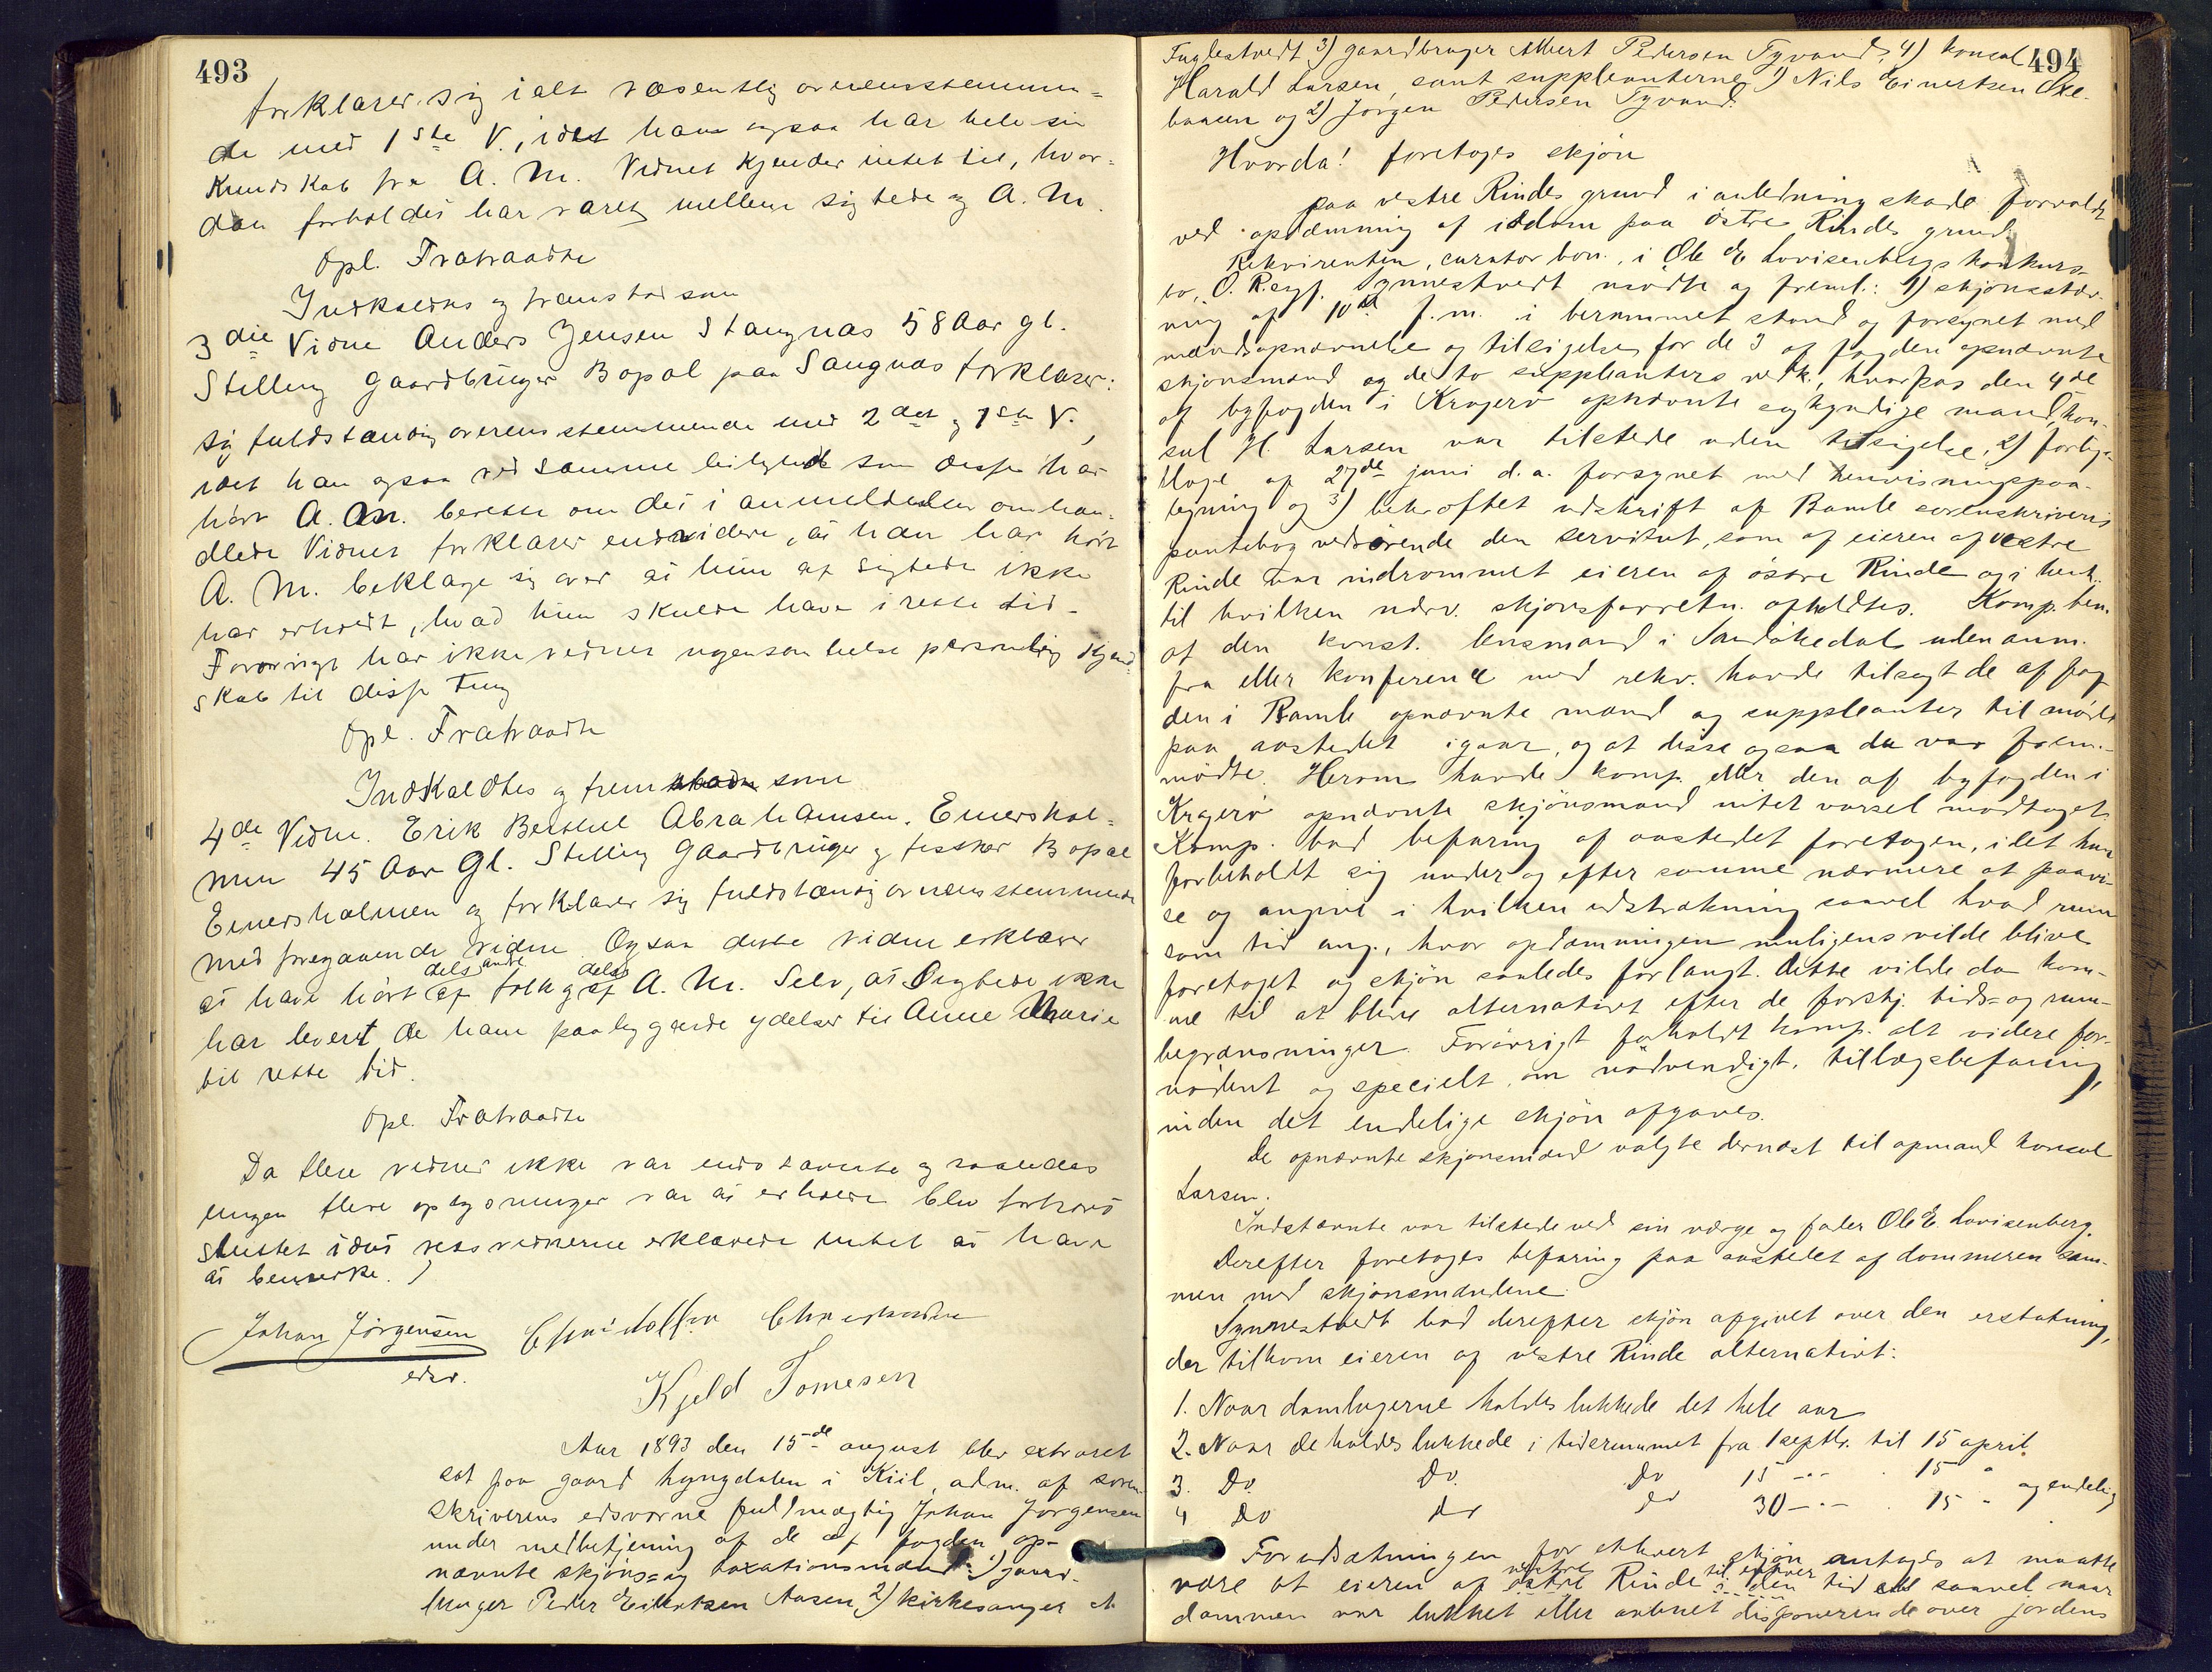 493
forklarer sig i alt væsentlig overensstemmen=
de med 1ste V., idet han ogsaa har hele sin
Kundskab fra A. M. Vidnet kjender intet til, hvor-
dan forholdet har været mellem sigtede og A. M.
Opl. Fratraadte
Indkaldtes og fremstod som
3die Vidne Anders Jensen Stangnæs 58 Aar gl.
Stilling Gaardbruger Bopæl paa Sangnæs forklarer:
sig fuldstændig overensstemmende med 2det og 1ste V.,
idet han ogsaa ved samme leilighed som disse har
hørt A. M. berette om det i anmeldelsen omhan-
dlede Vidnet forklarer endvidere, at han har hørt
A. M. beklage sig over at hun af sigtede ikke
har erholdt, hvad hun skulde have i rette tid.
Forøvrigt har ikke vidnet nogensomhelst personlig Kjend
skab til disse Ting
Opl. Fratraadte
Indkaldtes og frem som
4de Vidne. Erik Berthel Abrahamsen, Emershol=
men 45 Aar Gl. Stilling Gaardbruger og fisker Bopæl
Emersholmen og forklarer sig fuldstændig overensstemmende
med foregaaende vidne. Ogsaa dette vidne erklærer
at have hørt dels af andre folk og dels af A. M. Selv, at Sigtede ikke
har levert de ham paaliggende ydelser til Anne Marie
til rette tid.
Opl. Fratraadte
Da flere vidner ikke var indstævnte og saaledes
ingen flere oplysninger var at erholde blev forhøret
sluttet idet retsvidnerne erklærede intet at have
at bemerke.
Johan Jørgensen
edsv.
Kjeld Tomesen
Aar 1893 den 15de august blev extraret
sat paa gaard Lyngdalen i Kiil, adm. af soren-
skriverens edsvorne fuldmægtig Johan Jørgensen
under medbetjening af de af fogden op-
nævnte skjøns= og taxationsmænd: 1) gaard-
bruger Peder Eilertsen Aasen, 2) kirkesanger A
494
Fuglestvedt 3) gaardbruger Albert Pedersen Tyvand, 4) konsul
Harald Larsen, samt suppleanterne 1) Nils Einertsen Oxe-
baasen og 2) Jørgen Pedersen Tyvand.
Hvorda! foretoges skjøn
paa vestre Rindes grund i anledning skade forvoldt
ved opdæmning af isdam paa østre Rindes grund
Rekvirenten, curator bon., i Ole E. Lovisenbergs konkurs-
bo, O. R.sagf. Synnestvedt mødte og freml.: 1) skjønsstæv-
ning af 10de f. m. i berammet stand og forsynet med
mændsopnævnelse og tilsigelse for de 3 af fogden opnævnte
skjønsmænd og de to suppleanters vedk., hvorpaa den 4de
af byfogden i Kragerø opnævnte sagkyndige mand, kon-
sul H. Larsen var tilstede uden tilsigelse, 2) forligs-
klage af 27de juni d. a. forsynet med henvisningspaa-
tegning og 3) bekræftet udskrift af Bamle sorenskriveris
pantebog vedrørende den servitut, som af eieren af vestre
Rinde var indrømmet eieren af østre Rinde og i henh.
til hvilken nærv. skjønsforretn. afholdtes. Komp. bem.
at den konst. lensmand i Sandøkedal uden anm.
fra eller konference med rekv. havde tilsagt de af fog-
den i Bamle opnævnte mænd og suppleanter til møde
paa aastedet igaar, og at disse ogsaa da var frem-
mødte. Herom havde komp. eller den af byfogden i
Kragerø opnævnte skjønsmand intet varsel modtaget.
Komp. bad befaring af aastedet foretagen, idet han
forbeholdt sig under og efter samme nærmere at paavi-
se og angive i hvilken udstrækning saavel hvad rum
som tid ang., hvor opdæmningen muligens vilde blive
foretaget og skjøn saaledes forlangt. Dette vilde da kom-
me til at blive alternativt efter de forskj. tids= og rum-
begrænsninger. Forøvrigt forholdt komp. alt videre for-
nødent og specielt, om nødvendigt, tillægsbefaring,
inden det endelige skjøn afgaves.
De opnævnte skjønsmænd valgte dernæst til opmand konsul
Larsen.
Indstævnte var tilstede ved sin værge og fader Ole E. Lovisenberg.
Derefter foretoges befaring paa aastedet af dommeren sam-
men med skjønsmændene
Synnestvedt bad derefter skjøn afgivet over den erstatning,
der tilkom eieren af vestre Rinde alternativt:
1. Naar damlugerne holdes lukkede det hele aar
2. Naar de holdes lukkede i tidsrummet fra 1 septbr. til 15 april.
3. Do. Do. Do 15 -"- 15 "
4 Do do do 30 -"- 15 " og endelig
Forudsætningen for ethvert skjøn antages at maatte
være at eieren af vestre Rinde til enhver tid saavel naar
dammen var lukket eller aabnet disponerende over jordens